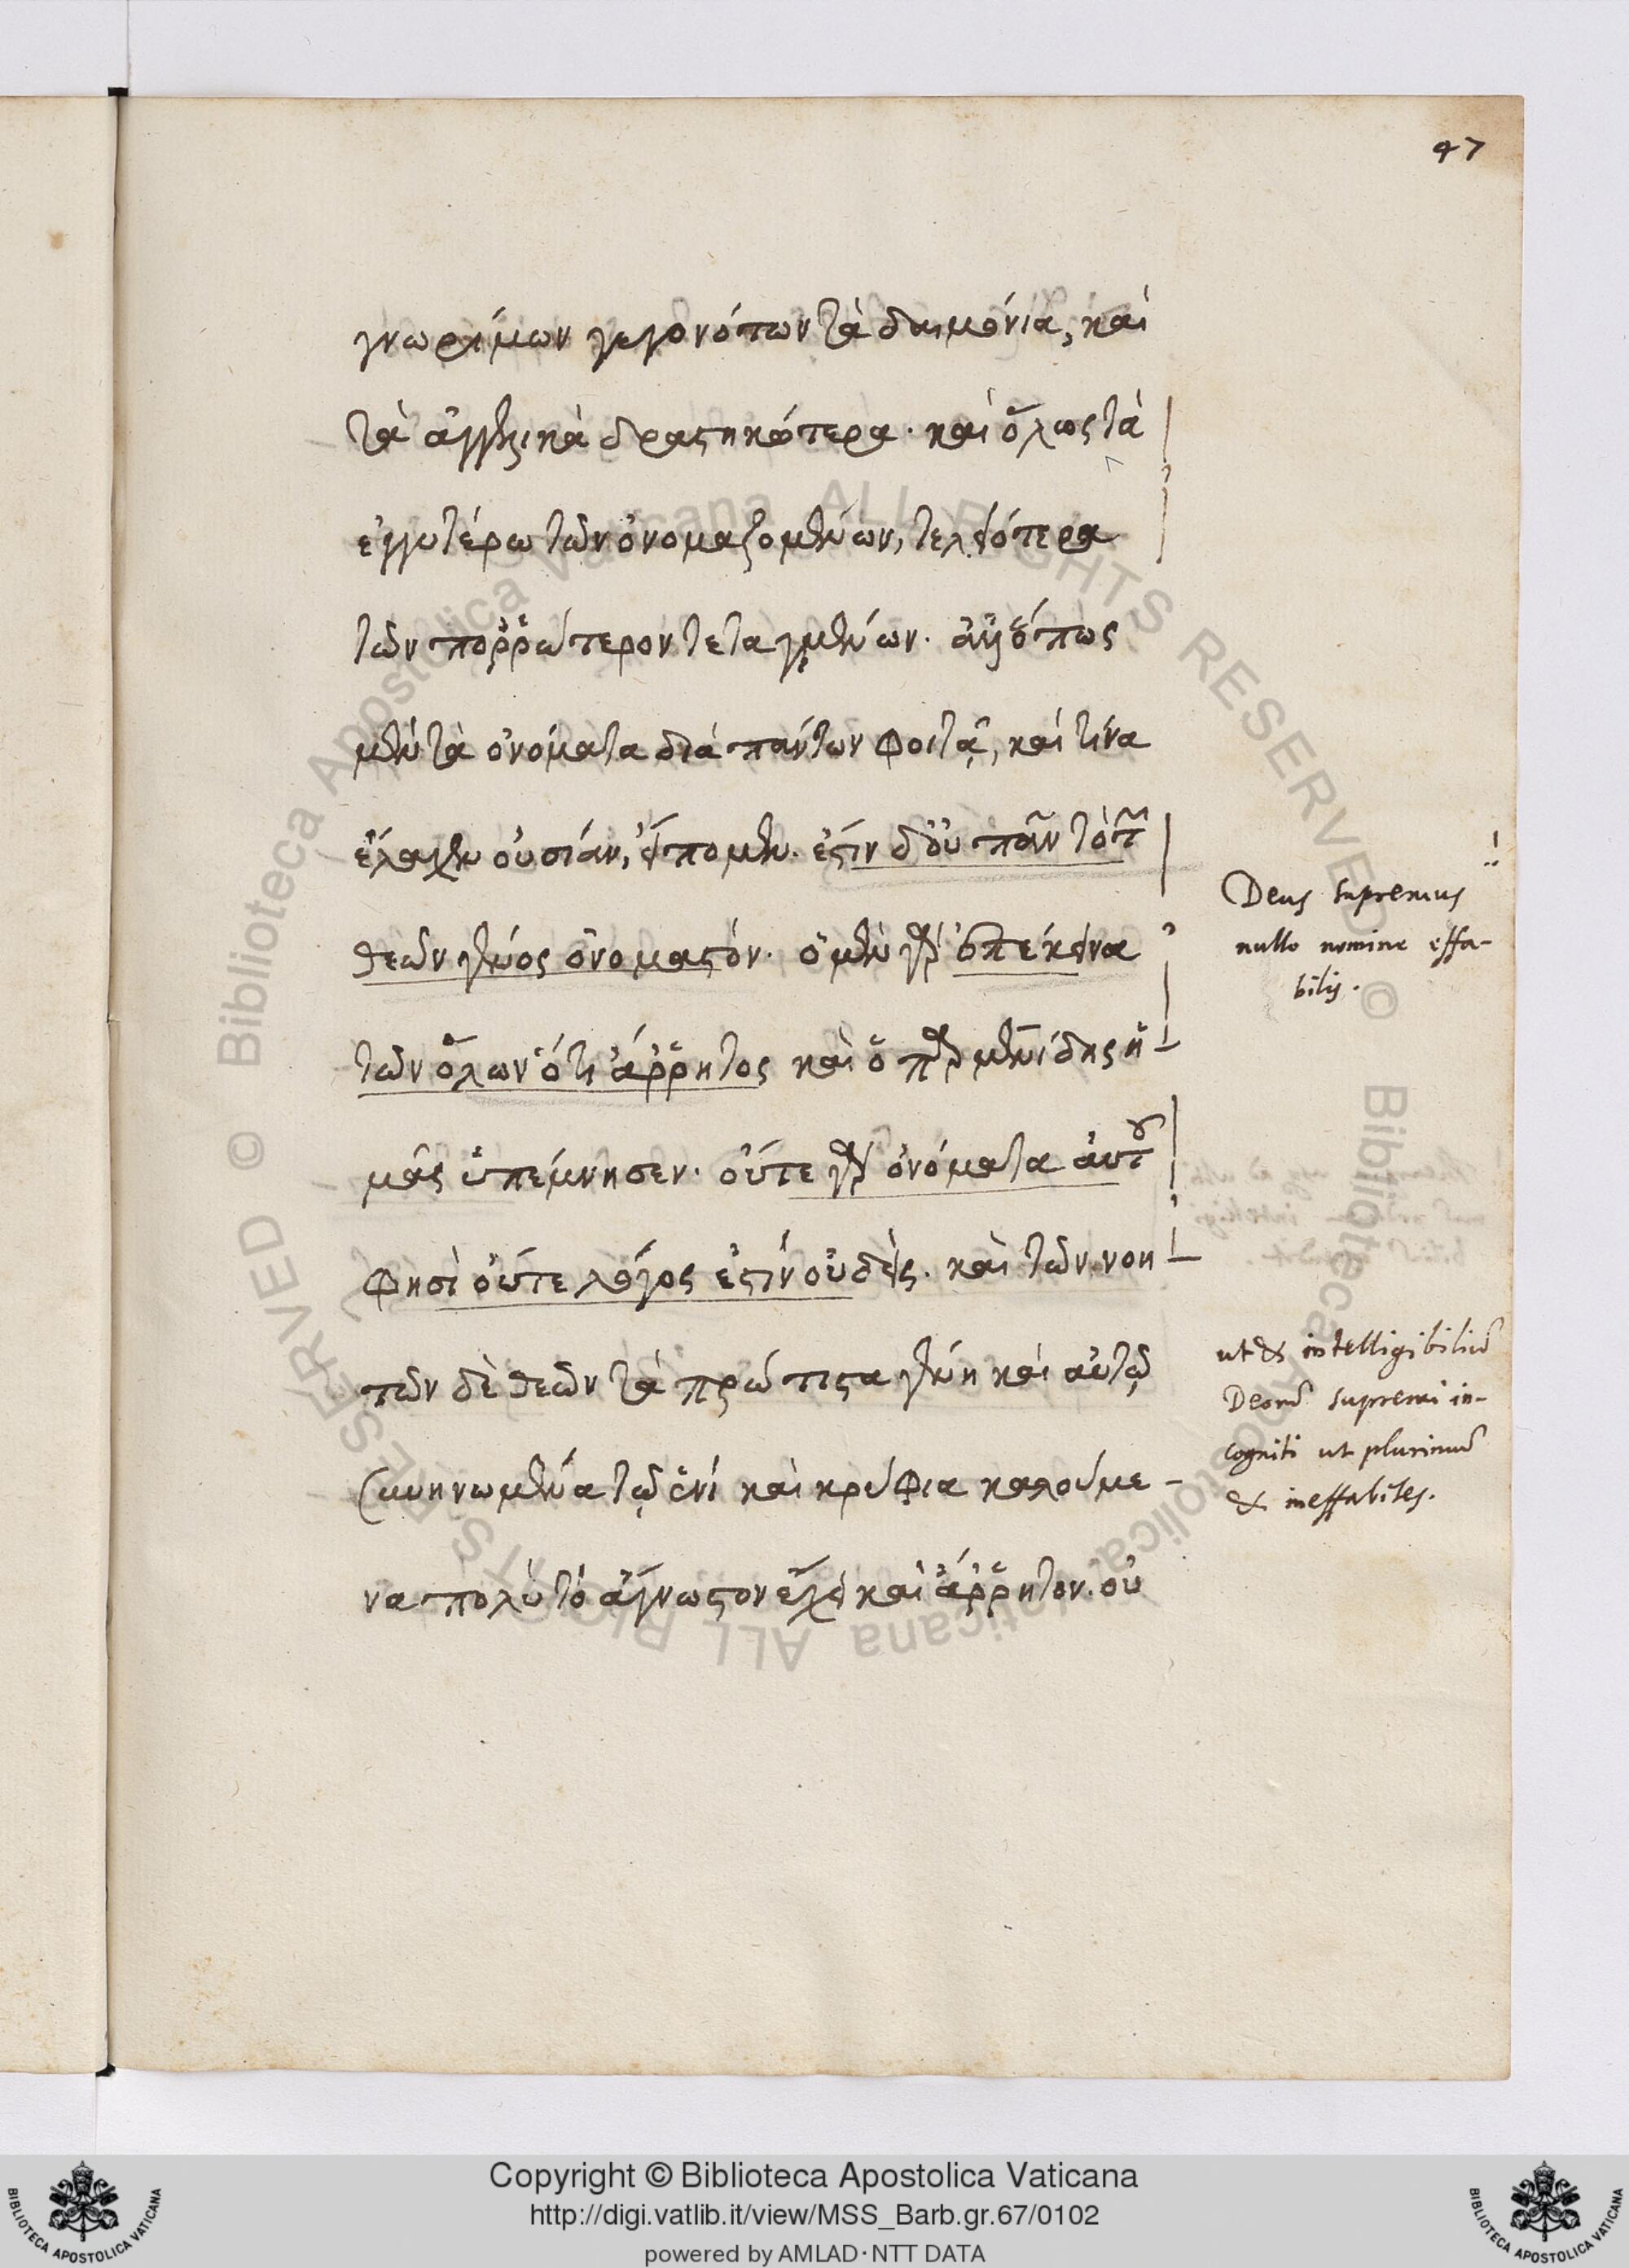 47
γνωρίμων γεγονότων τὰ δαιμόνια, καὶ
τὰ ἀγγελικὰ δραστικώτερα· καὶ ὅλως τὰ
ἐγγυτέρω τῶν ὀνομαζομένων, τελειότερα
τῶν πορρώτερον τεταγμένων. ἀλλ' ὅπως
μὲν τὰ ὀνόματα διὰ πάντων φοιτᾷ, καὶ τίνα
ἔλαχεν οὐσίαν, εἴπομεν. ἐστὶν δ' οὐ πᾶν τὸ τῶν
θεῶν γένος ὀνομαστόν. ὁ μὲν γὰρ ἐπέκεινα
τῶν ὅλων ὅτι ἄρρητος καὶ ὁ παρμενίδης ἡ
μᾶς ὑπέμνησεν. οὔτε γὰρ ὀνόματα αὐτοῦ
φησὶ οὔτε λόγος ἐστὶν οὐδείς. καὶ τῶν νοη
τῶν δὲ θεῶν τὰ πρώτιστα γένη καὶ αὐτῷ
συνηνωμένα τῷ ἑνὶ καὶ κρύφια καλούμε-
να πολὺ τὸ ἄγνωστον ἔχει καὶ ἄρρητον. οὐ
Deus supremus
nullo nomine effa-
bilis.
ut & intelligibiliũ
Deorũ supremi in-
cogniti ut plurimũ
& ineffabiles.
© Biblioteca Apostolica Vaticana ALL RIGHTS RESERVED
© Biblioteca Apostolica Vaticana ALL RIGHTS RESERVED
Copyright © Biblioteca Apostolica Vaticana
http://digi.vatlib.it/view/MSS_Barb.gr.67/0102
powered by AMLAD·NTT DATA
BIBLIOTECA APOSTOLICA VATICANA
BIBLIOTECA APOSTOLICA VATICANA